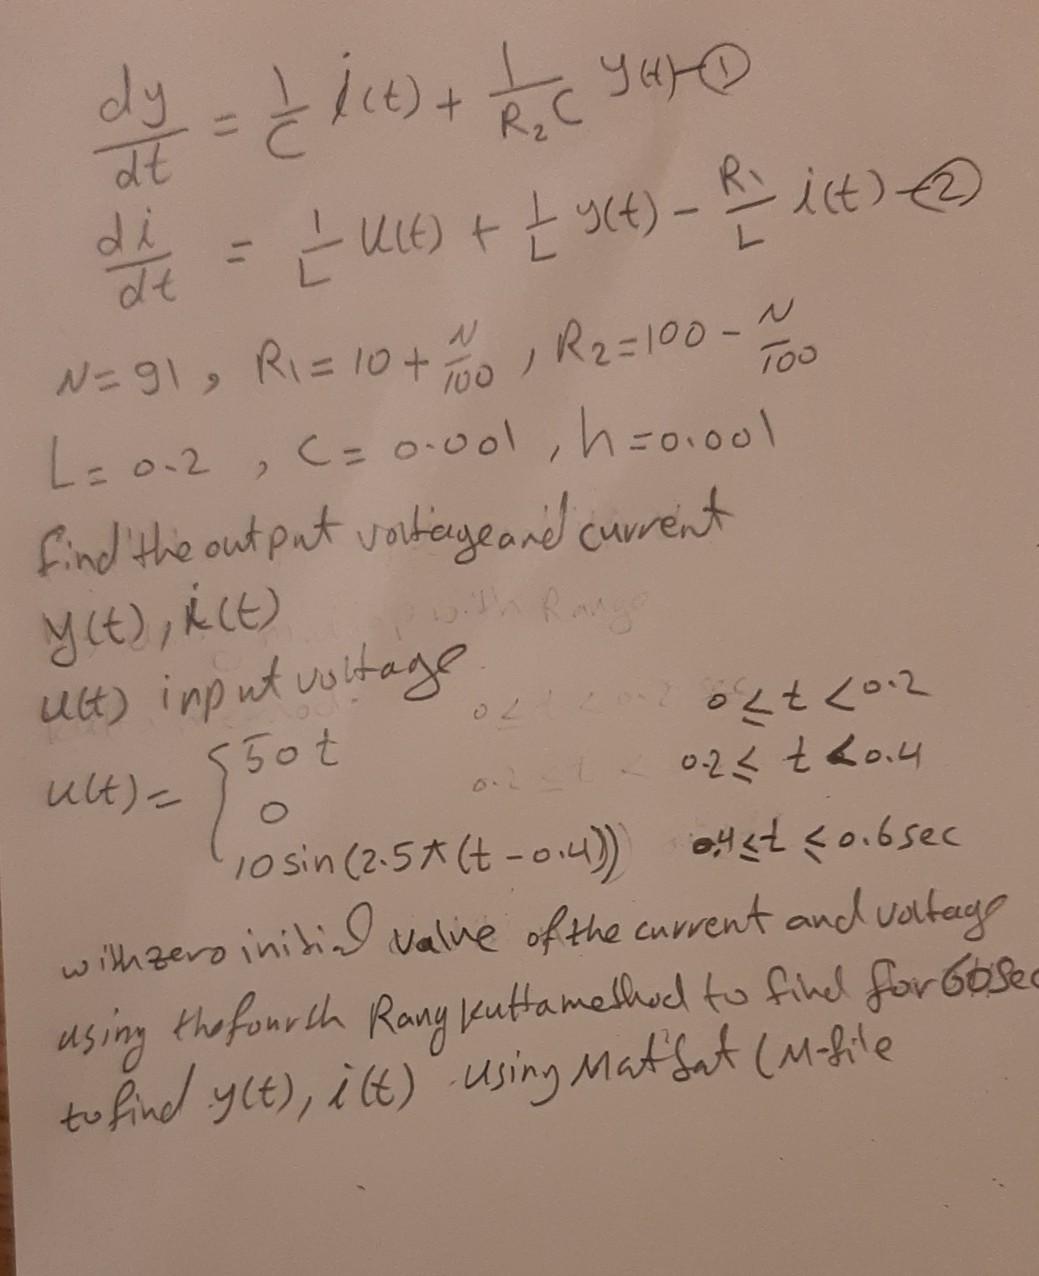 dy/dt = 1/C i(t) + 1/(R₂C) y(t) —①
di/dt = 1/L u(t) + 1/L y(t) - R₁/L i(t) —②
N=91, R₁=10+N/100, R₂=100-N/100
L=0.2, C=0.001, h=0.001
find the output voltage and current
y(t), i(t)
u(t) input voltage
u(t) = { 50t 0≤t<0.2
0 0.2≤t<0.4
10sin(2.5π(t-0.4)) 0.4≤t≤0.6sec
with zero initial value of the current and voltage
using the fourth Rang kutta method to find for
to find y(t), i(t) using (M-file